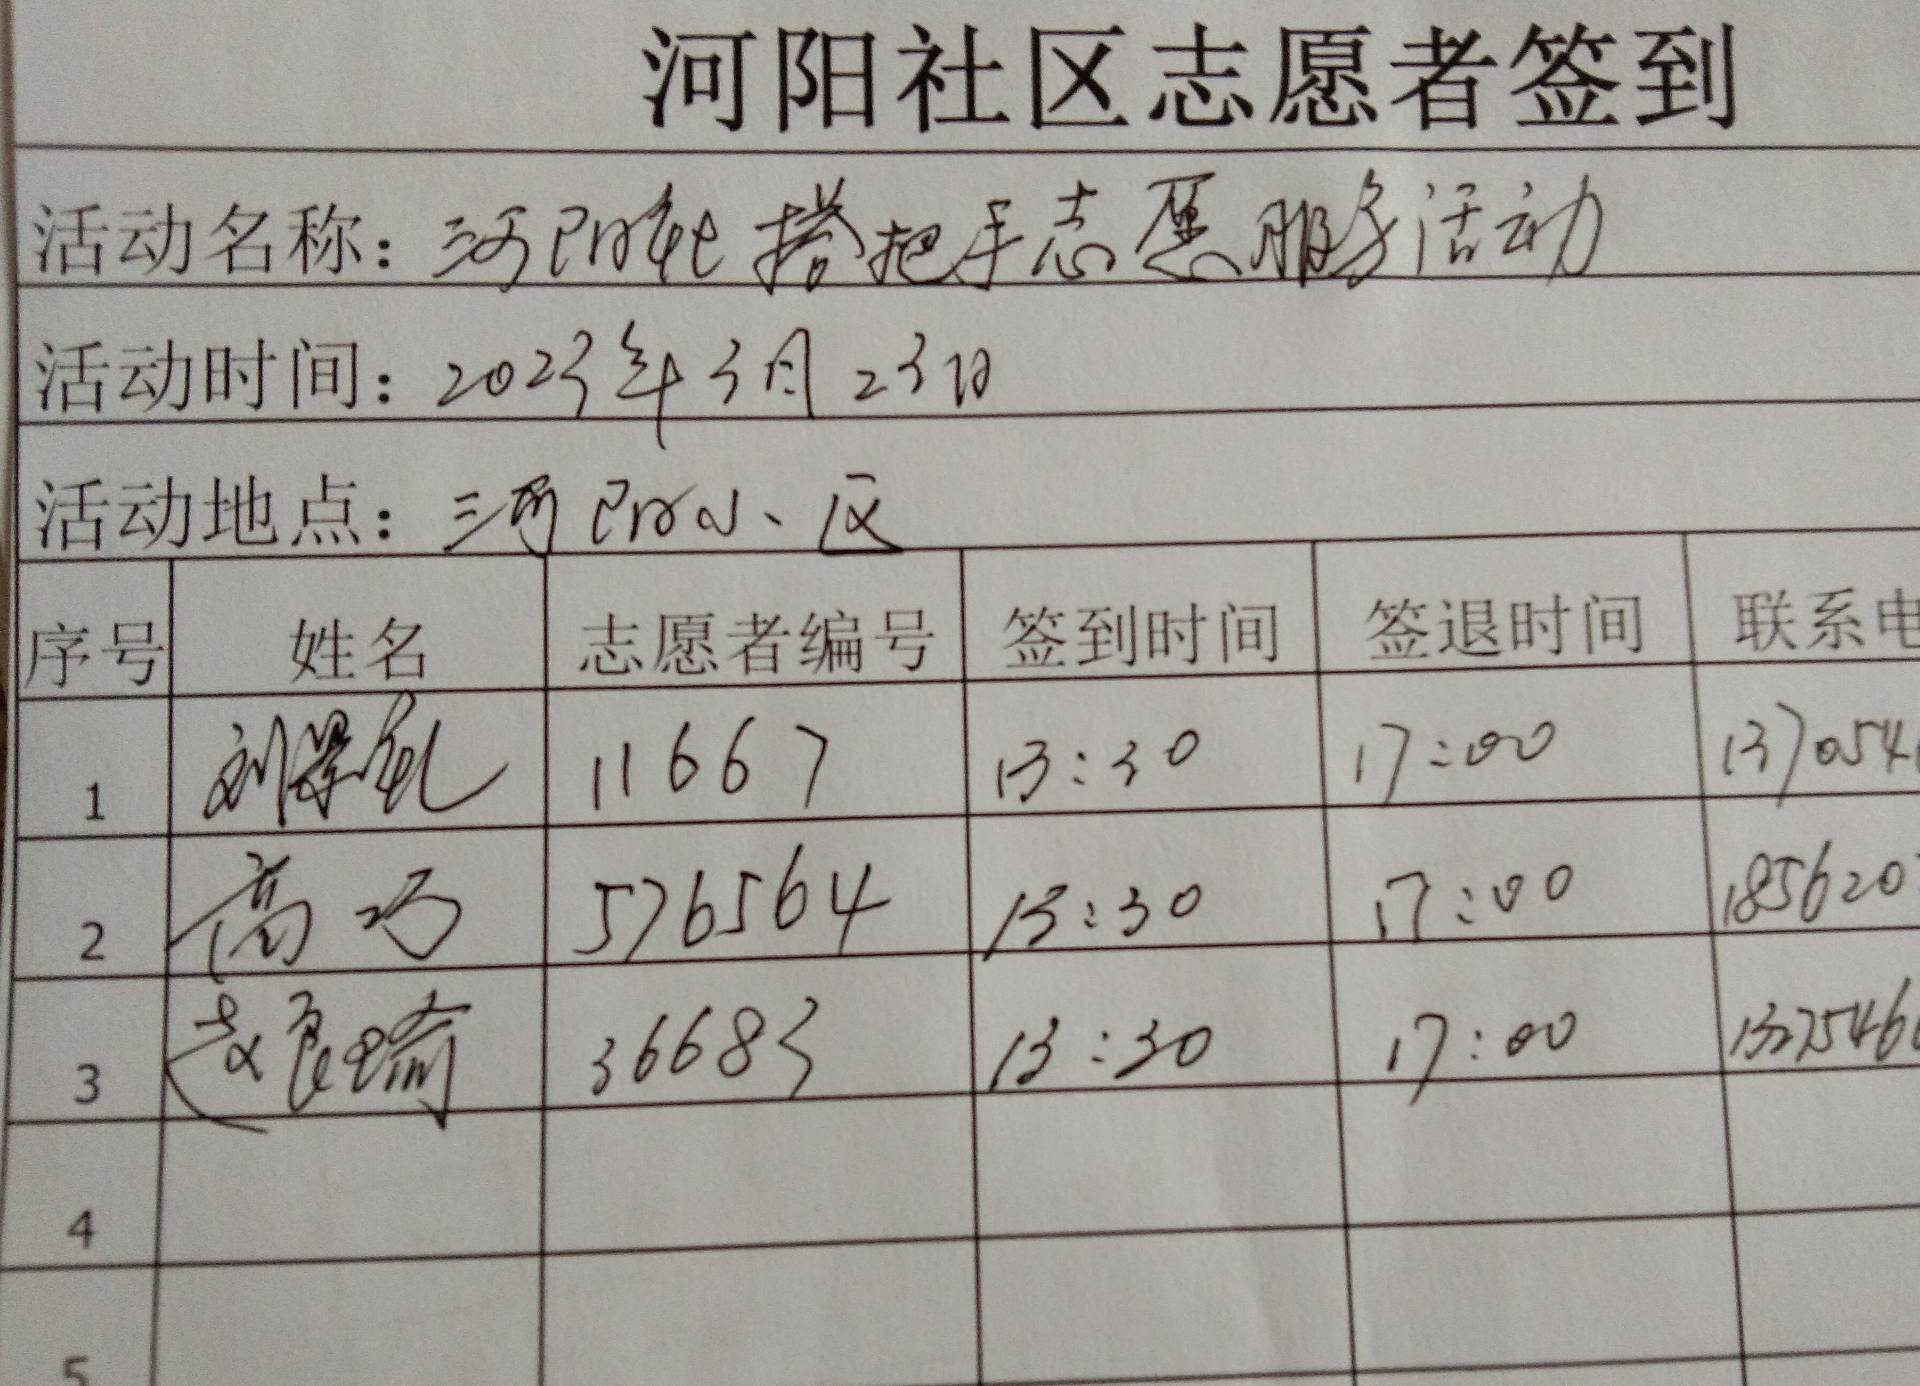 河阳社区志愿者签到
活动名称：河阳社搭把手志愿服务活动
活动时间：2023年3月23日
活动地点：河阳小区
序号 姓名 志愿者编号 签到时间 签退时间 联系电
1 刘 11667 13:30 17:00 137054
2 高巧 576564 13:30 17:00 185620
3 赵良瑜 36683 13:30 17:00 1327546
4
5